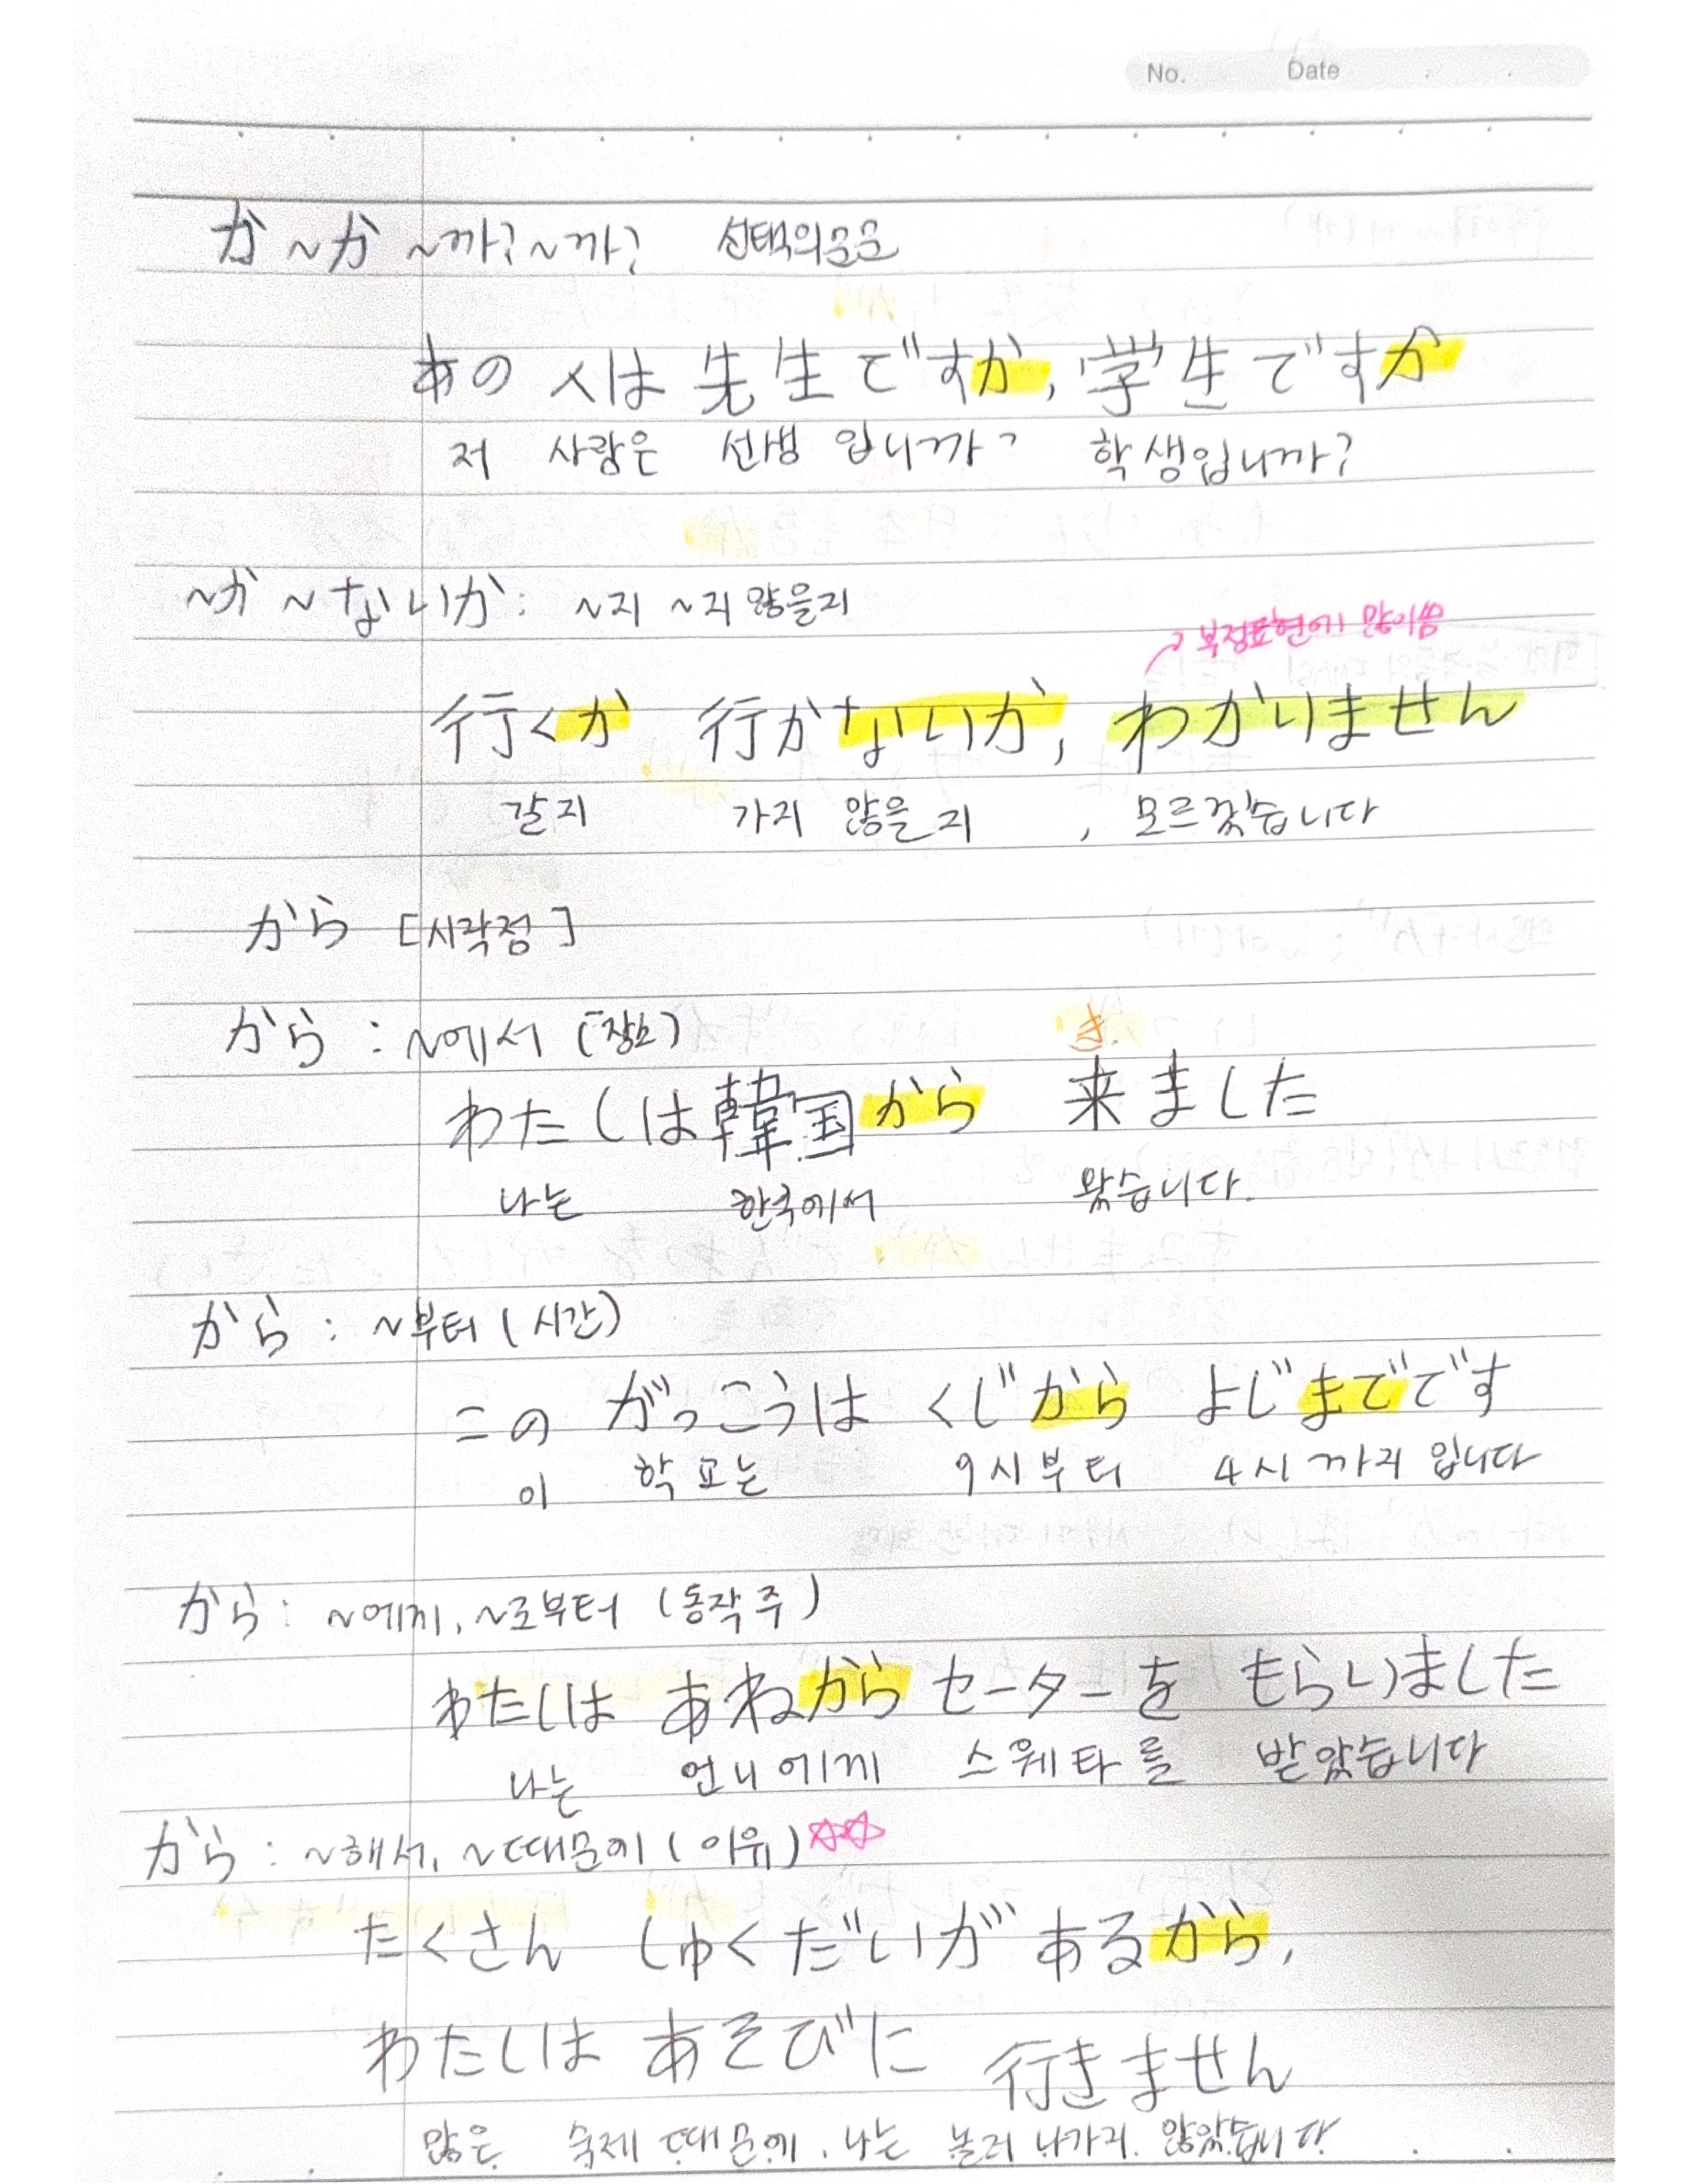 No. Date
か ~か ~까? ~까? 선택의문문
あの 人は 先生ですか, 学生ですか
저 사람은 선생 입니까? 학생입니까?
~か ~ないか: ~지 ~지 않을지
↗ 부정표현에 많이씀
行くか 行かないか, わかりません
갈지 가지 않을지, 모르겠습니다
から [시작점]
から : ~에서 (장소)
き
わたしは韓国から 来ました
나는 한국에서 왔습니다.
から : ~부터 (시간)
この がっこうは くじから よじまでです
이 학교는 9시부터 4시까지 입니다
から: ~에게, ~로부터 (동작주)
わたしは あねから セーターを もらいました
나는 언니에게 스웨타를 받았습니다
から : ~해서, ~때문에 (이유) ☆☆
たくさん しゅくだいが あるから,
わたしは あそびに 行きません
많은 숙제 때문에, 나는 놀러 나가지 않았습니다